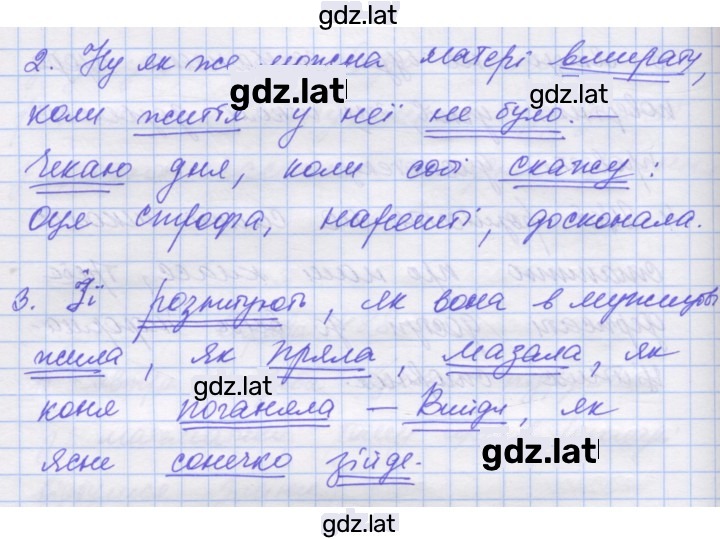 gdz.lat
2. Ну як же можна матері вмирати,
gdz.lat
gdz.lat
коли життя у неї не було. –
Чекаю дня, коли собі скажу:
оця строфа, нарешті, досконала.
3. Її розпитують, як вона в мужицтві
жила, як пряла, мазала, як
gdz.lat
коня поганяла – Вийди, як
ясне сонечко зійде.
gdz.lat
gdz.lat